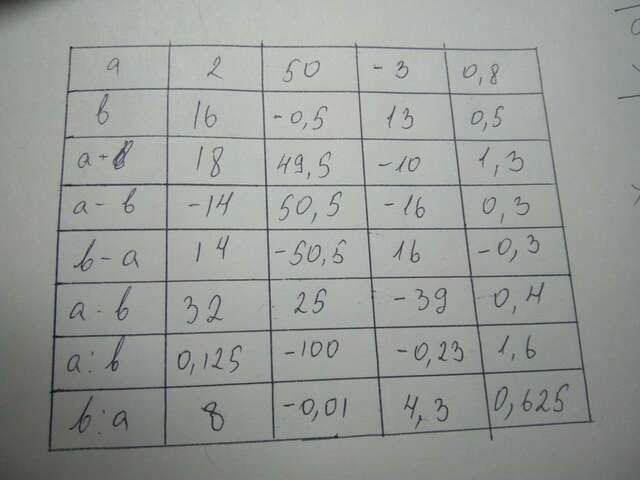 а 2 50 - 3 0,8
в 16 -0,5 13 0,5
а+в 18 49,5 -10 1,3
а- в -14 50,5 -16 0,3
в-а 14 -50,5 16 -0,3
а · в 32 25 -39 0,4
а:в 0,125 -100 -0,23 1,6
в:а 8 -0,01 4,3 0,625